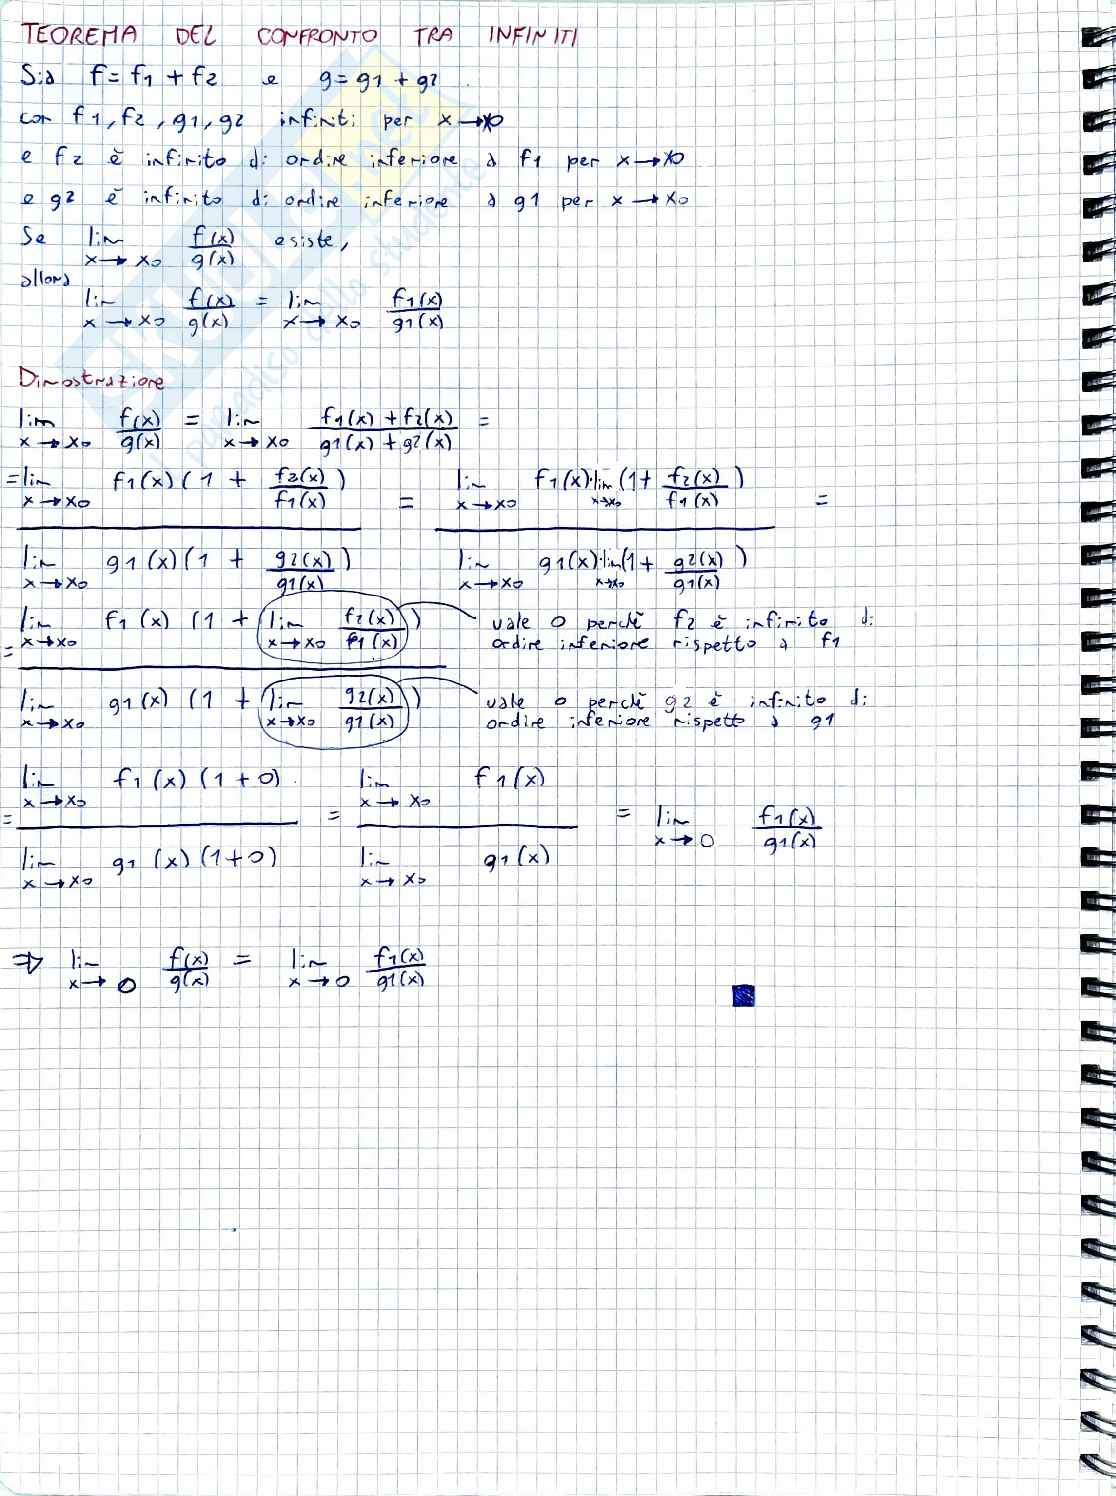 TEOREMA DEL CONFRONTO TRA INFINITI
Sia f = f1 + f2 e g = g1 + g2
con f1, f2, g1, g2 infiniti per x → x0
e f2 è infinito di ordine inferiore a f1 per x → x0
e g2 è infinito di ordine inferiore a g1 per x → x0
Se lim x → x0 f(x)/g(x) esiste,
allora
lim x → x0 f(x)/g(x) = lim x → x0 f1(x)/g1(x)
Dimostrazione
lim x → x0 f(x)/g(x) = lim x → x0 (f1(x) + f2(x))/(g1(x) + g2(x)) =
= lim x → x0 f1(x) (1 + f2(x)/f1(x)) = lim x → x0 f1(x) · lim x → x0 (1 + f2(x)/f1(x)) =
lim x → x0 g1(x) (1 + g2(x)/g1(x)) lim x → x0 g1(x) · lim x → x0 (1 + g2(x)/g1(x))
= lim x → x0 f1(x) (1 + lim x → x0 f2(x)/f1(x)) vale 0 perchè f2 è infinito di
ordine inferiore rispetto a f1
lim x → x0 g1(x) (1 + lim x → x0 g2(x)/g1(x)) vale 0 perchè g2 è infinito di
ordine inferiore rispetto a g1
= lim x → x0 f1(x) (1 + 0) = lim x → x0 f1(x) = lim x → 0 f1(x)/g1(x)
lim x → x0 g1(x) (1 + 0) lim x → x0 g1(x)
⇒ lim x → 0 f(x)/g(x) = lim x → 0 f1(x)/g1(x)